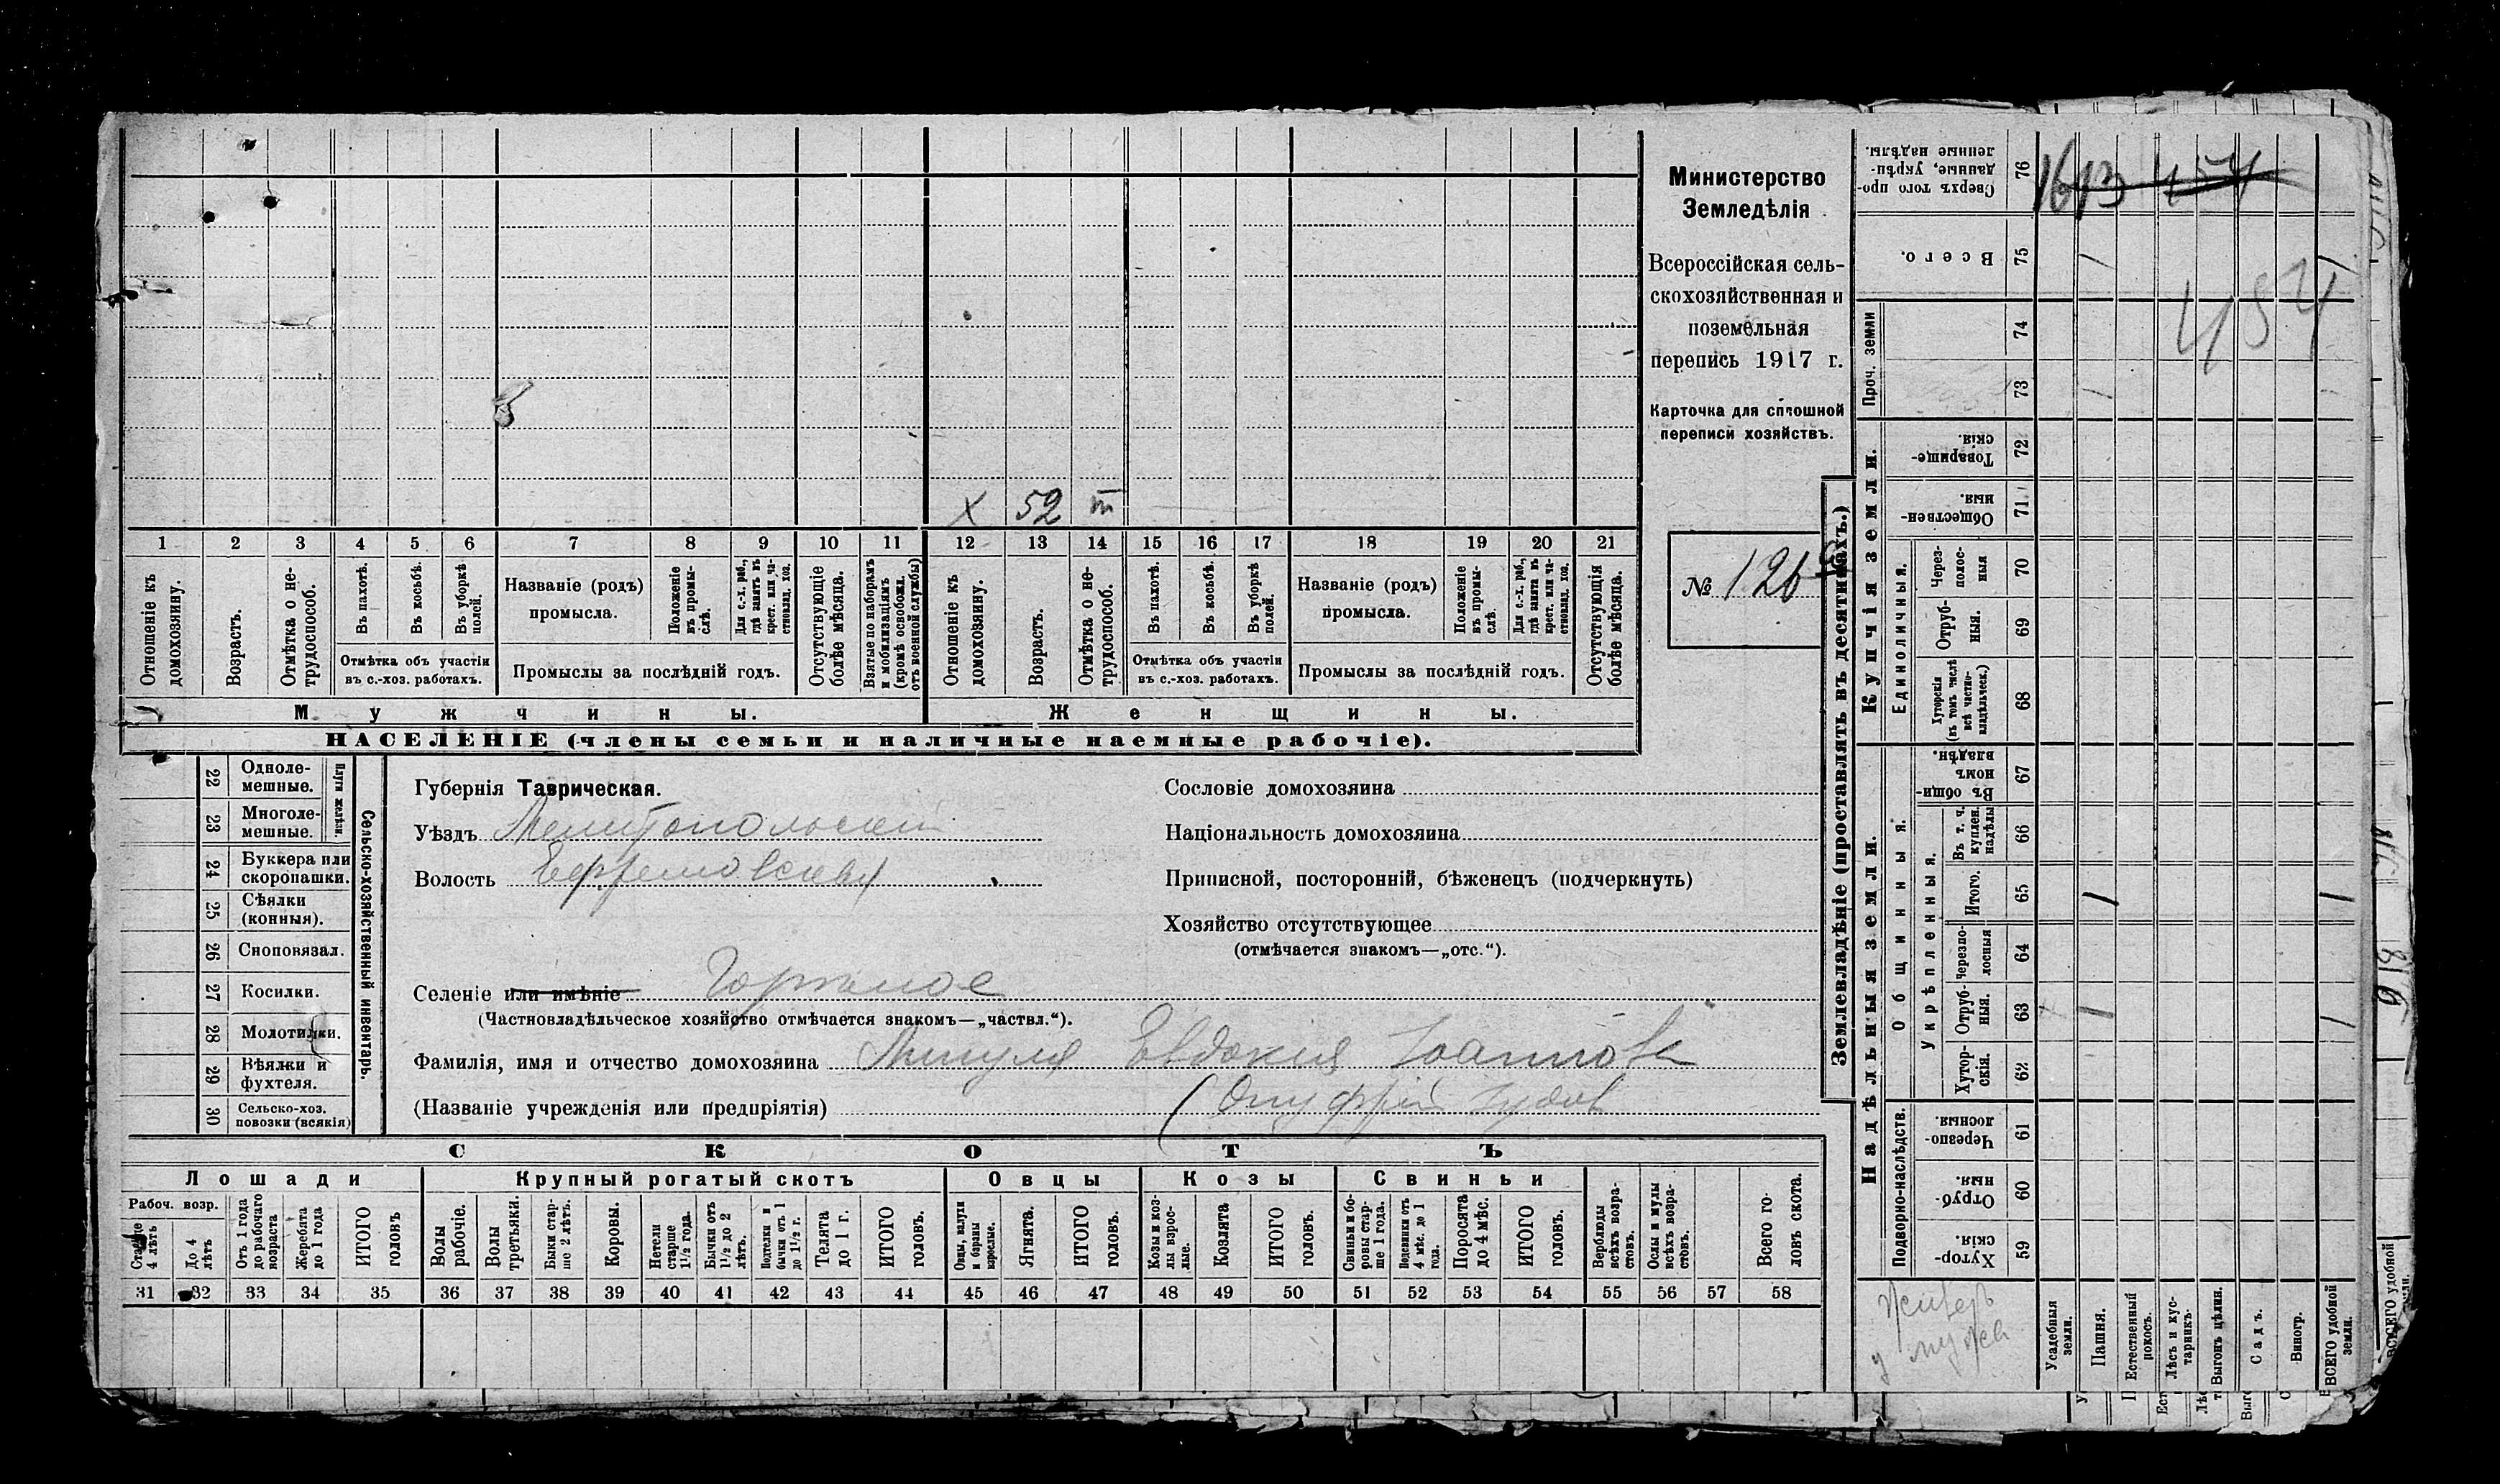 Министерство
Земледѣлія
Всероссійская сель-
скохозяйственная и
поземельная
перепись 1917 г.
Карточка для сплошной
переписи хозяйствъ.
№ 126
X 52
1 2 3 4 5 6 7 8 9 10 11 12 13 14 15 16 17 18 19 20 21
Отношеніе къ домохозяину.
Возрастъ.
Отмѣтка о не-трудоспособ.
Въ пахотѣ.
Въ косьбѣ.
Въ уборкѣ полей.
Отмѣтка объ участіи
въ с.-хоз. работахъ.
Названіе (родъ)
промысла.
Положеніе въ промы-слѣ.
Для с.-х. раб., гдѣ занятъ въ крест. или ча-стновлад. хоз.
Промыслы за послѣдній годъ.
Отсутствующіе болѣе мѣсяца.
Взятые по наборамъ и мобилизаціямъ (кромѣ освобожд. отъ военной службы)
Отношеніе къ домохозяину.
Возрастъ.
Отмѣтка о не-трудоспособ.
Въ пахотѣ.
Въ косьбѣ.
Въ уборкѣ полей.
Отмѣтка объ участіи
въ с.-хоз. работахъ.
Названіе (родъ)
промысла.
Положеніе въ промы-слѣ.
Для с.-х. раб., гдѣ занятъ въ крест. или ча-стновлад. хоз.
Промыслы за послѣдній годъ.
Отсутствующія болѣе мѣсяца.
Мужчины.
Женщины.
НАСЕЛЕНІЕ (члены семьи и наличные наемные рабочіе).
Сельско-хозяйственный инвентарь.
Плуги желѣзн.
22 Одноле-мешные.
23 Многоле-мешные.
24 Буккера или скоропашки.
25 Сѣялки (конныя).
26 Сноповязал.
27 Косилки.
28 Молотилки.
29 Вѣялки и фухтеля.
30 Сельско-хоз. повозки (всякія)
Губернія Таврическая.
Уѣздъ Мелитопольскій
Волость Ефремовская
Селеніе или имѣніе Горѣлое
(Частновладѣльческое хозяйство отмѣчается знакомъ—„частвл.“).
Фамилія, имя и отчество домохозяина Мигуля Евдокия Іоаннова
(Названіе учрежденія или предпріятія) (Онуфрій
Сословіе домохозяина
Національность домохозяина
Приписной, посторонній, бѣженецъ (подчеркнуть)
Хозяйство отсутствующее
(отмѣчается знакомъ—„отс.“).
СКОТЪ
Лошади
Крупный рогатый скотъ
Овцы
Козы
Свиньи
Рабоч. возр.
Старше 4 лѣтъ
До 4 лѣтъ
Отъ 1 года до рабочаго возраста
Жеребята до 1 года
ИТОГО головъ
Волы рабочіе.
Волы третьяки.
Быки стар-ше 2 лѣтъ.
Коровы.
Нетели старше 1½ года.
Бычки отъ 1½ до 2 лѣтъ.
Подтелки и бычки отъ 1 до 1½ г.
Телята до 1 г.
ИТОГО головъ.
Овцы, валухи и бараны взрослые.
Ягнята.
ИТОГО головъ.
Козы и коз-лы взрос-лые.
Козлята
ИТОГО головъ.
Свиньи и бо-ровы стар-ше 1 года.
Подсвинки отъ 4 мѣс. до 1 года.
Поросята до 4 мѣс.
ИТОГО головъ.
Верблюды всѣхъ возра-стовъ.
Ослы и мулы всѣхъ возра-стовъ.
Всего го-ловъ скота.
31 32 33 34 35 36 37 38 39 40 41 42 43 44 45 46 47 48 49 50 51 52 53 54 55 56 57 58
Землевладѣніе (проставлять въ десятинахъ.)
Надѣльныя земли.
Купчія земли.
Проч. земли
Подворно-наслѣдств.
Общинныя.
Укрѣпленныя.
Единоличныя.
Сверхъ того про-данные, укрѣп-ленные надѣлы. 76
Всего. 75
74
73
Товарище-скія. 72
Обществен-ныя. 71
Через-полос-ныя 70
Отруб-ныя. 69
Хуторскія (въ томъ числѣ всѣ частно-владѣльческ.) 68
Въ общин-номъ владѣн. 67
Въ т. ч. куплен. надѣлы 66
Итого. 65
Черезпо-лосныя 64
Отруб-ныя. 63
Хутор-скія. 62
Черезпо-лосныя. 61
Отруб-ныя. 60
Хутор-скія. 59
1613 454
454
Живетъ
у мужа
Усадебныя земли.
Пашня.
Естественный покосъ.
Лѣсъ и кус-тарникъ.
Выгонъ цѣлин.
Садъ.
Виногр.
ВСЕГО удобной земли.
ВСЕГО удобной